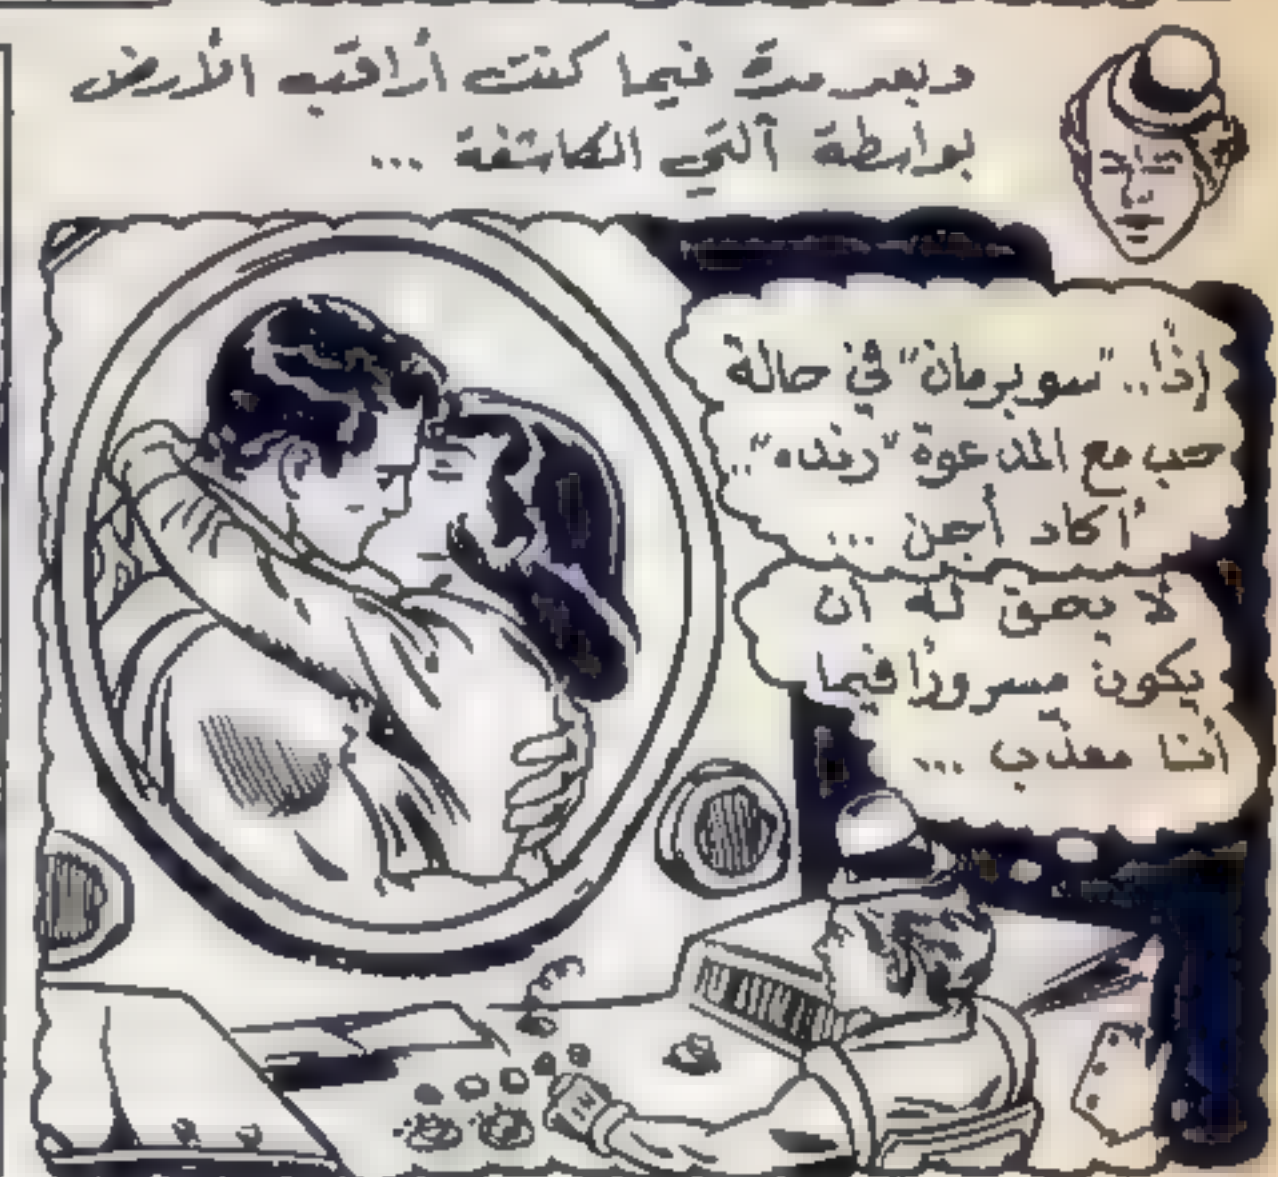 وبعد مدة فيما كنت أراقب الأرض
بواسطة آلتي الكاشفة ...
إذًا.. "سوبرمان" في حالة
حب مع المدعوة "رنده"..
أكاد أجن ...
لا يحق له أن
يكون مسرورًا فيما
أنا معذب ...